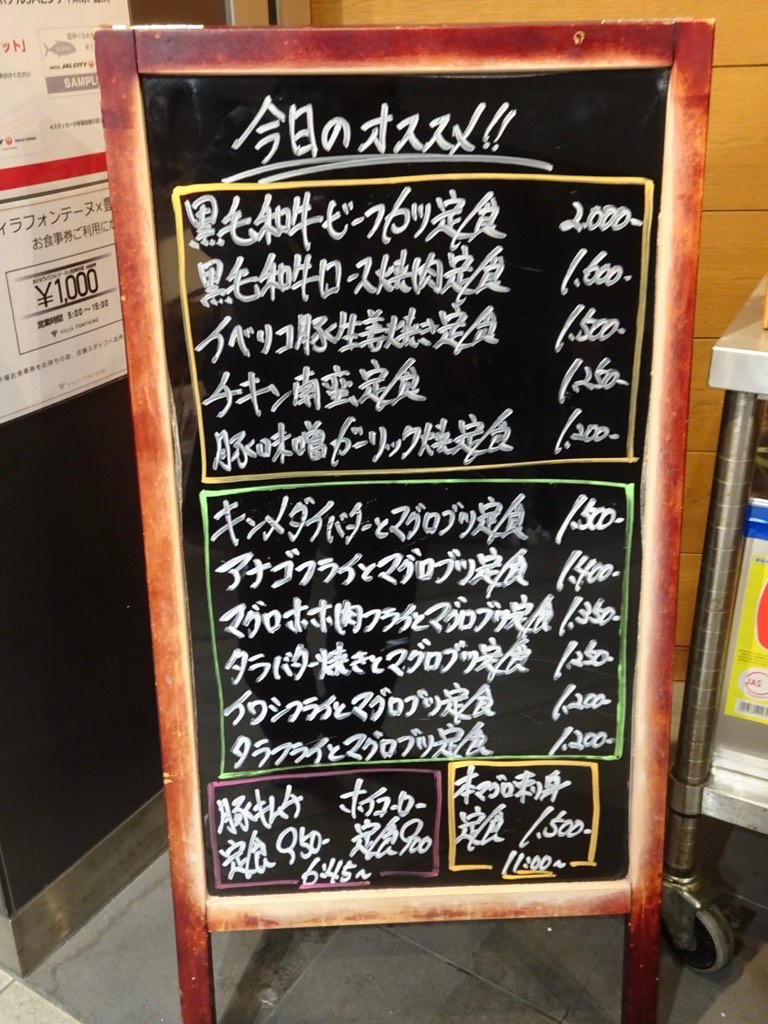 今日のオススメ!!
黒毛和牛ビーフカツ定食 2,000-
黒毛和牛ロース焼肉定食 1,600-
イベリコ豚生姜焼き定食 1,500-
チキン南蛮定食 1,250-
豚味噌ガーリック焼定食 1,200-
キンメダイバターとマグロブツ定食 1,500-
アナゴフライとマグロブツ定食 1,400-
マグロホホ肉フライとマグロブツ定食 1,350-
タラバター焼きとマグロブツ定食 1,250-
イワシフライとマグロブツ定食 1,200-
タラフライとマグロブツ定食 1,200-
豚キムチ
定食 950-
ホイコーロー
定食 900
6:45~
本マグロ刺身
定食 1,500-
11:00~
SAMPL
JAL CITY
ィラフォンテーヌ×豊
お食事券ご利用に
¥1,000
営業時間 5:00~15:00
VILLA FONTAINE
JAS